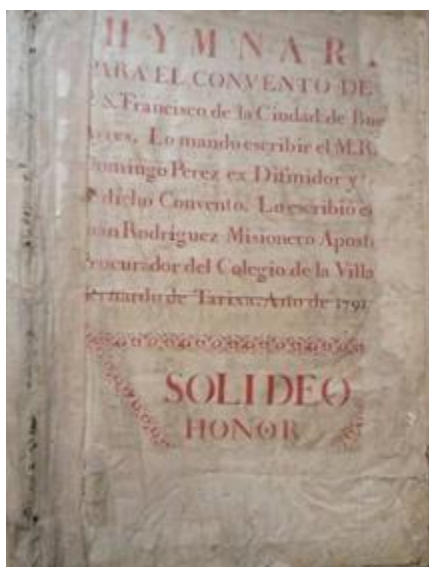 HYMNAR.
PARA EL CONVENTO DE
S. Francisco de la Ciudad de Bue
Ayres. Lo mando escribir el M.R.
Domingo Perez ex Difinidor y
dicho Convento. Lo escribió el
Juan Rodriguez Misionero Aposto
Procurador del Colegio de la Villa
Bernardo de Tarixa. Año de 1791
SOLI DEO
HONOR